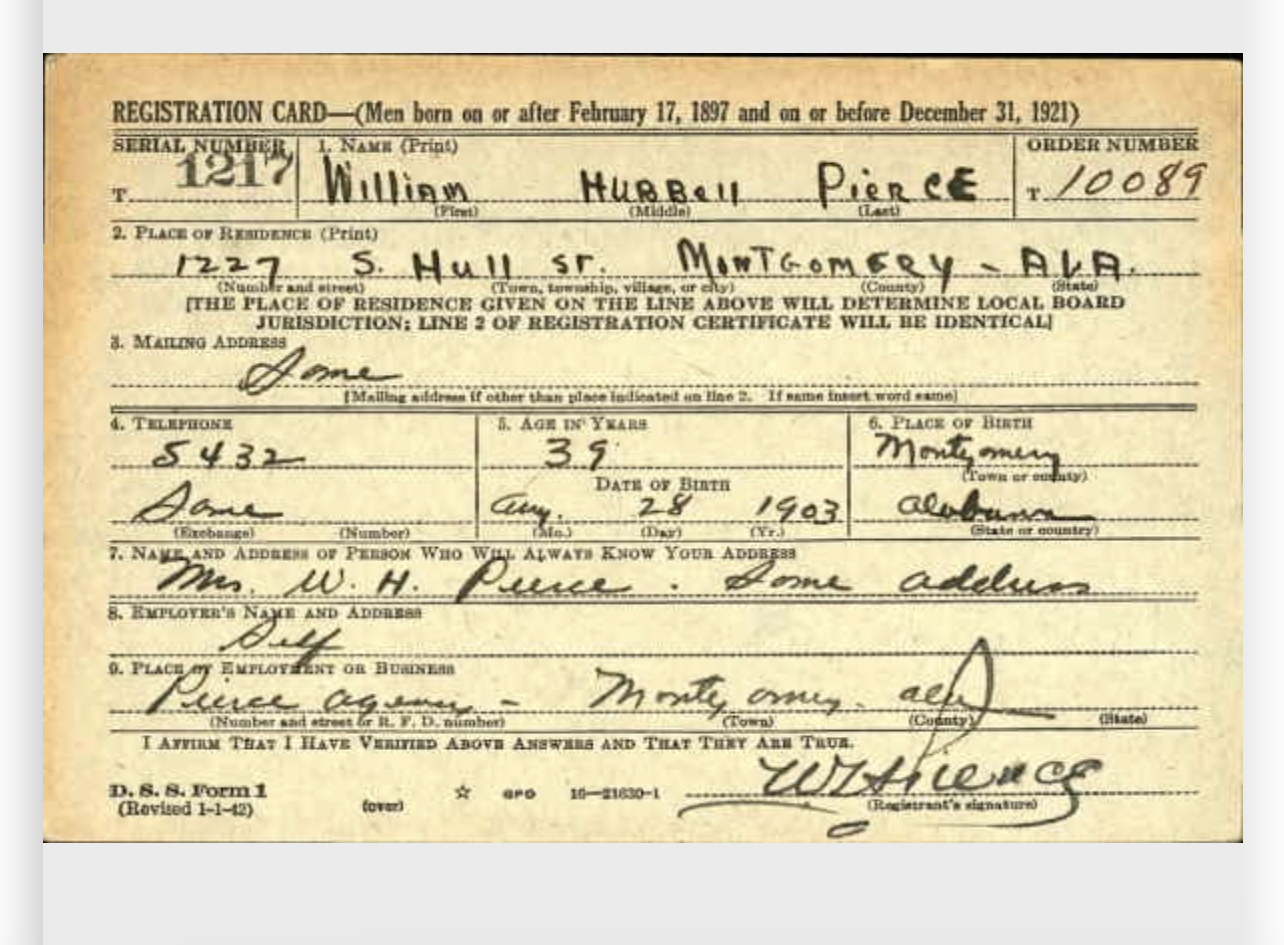 REGISTRATION CARD—(Men born on or after February 17, 1897 and on or before December 31, 1921)
SERIAL NUMBER 1. NAME (Print) ORDER NUMBER
T 1217 William Hubbell Pierce T 10089
(First) (Middle) (Last)
2. PLACE OF RESIDENCE (Print)
1227 S. Hull St. Montgomery - ALA.
(Number and street) (Town, township, village, or city) (County) (State)
[THE PLACE OF RESIDENCE GIVEN ON THE LINE ABOVE WILL DETERMINE LOCAL BOARD
JURISDICTION; LINE 2 OF REGISTRATION CERTIFICATE WILL BE IDENTICAL]
3. MAILING ADDRESS
Same
[Mailing address if other than place indicated on line 2. If same insert word same]
4. TELEPHONE 5. AGE IN YEARS 6. PLACE OF BIRTH
5432 39 Montgomery
DATE OF BIRTH (Town or county)
Same Aug. 28 1903 Alabama
(Exchange) (Number) (Mo.) (Day) (Yr.) (State or country)
7. NAME AND ADDRESS OF PERSON WHO WILL ALWAYS KNOW YOUR ADDRESS
Mrs. W. H. Pierce. Same address
8. EMPLOYER'S NAME AND ADDRESS
Self
9. PLACE OF EMPLOYMENT OR BUSINESS
Pierce Agency - Montgomery. Ala
(Number and street or R. F. D. number) (Town) (County) (State)
I AFFIRM THAT I HAVE VERIFIED ABOVE ANSWERS AND THAT THEY ARE TRUE.
W H Pierce
D. S. S. Form 1 ☆ GPO 16—21630-1 (Registrant's signature)
(Revised 1-1-42) (over)